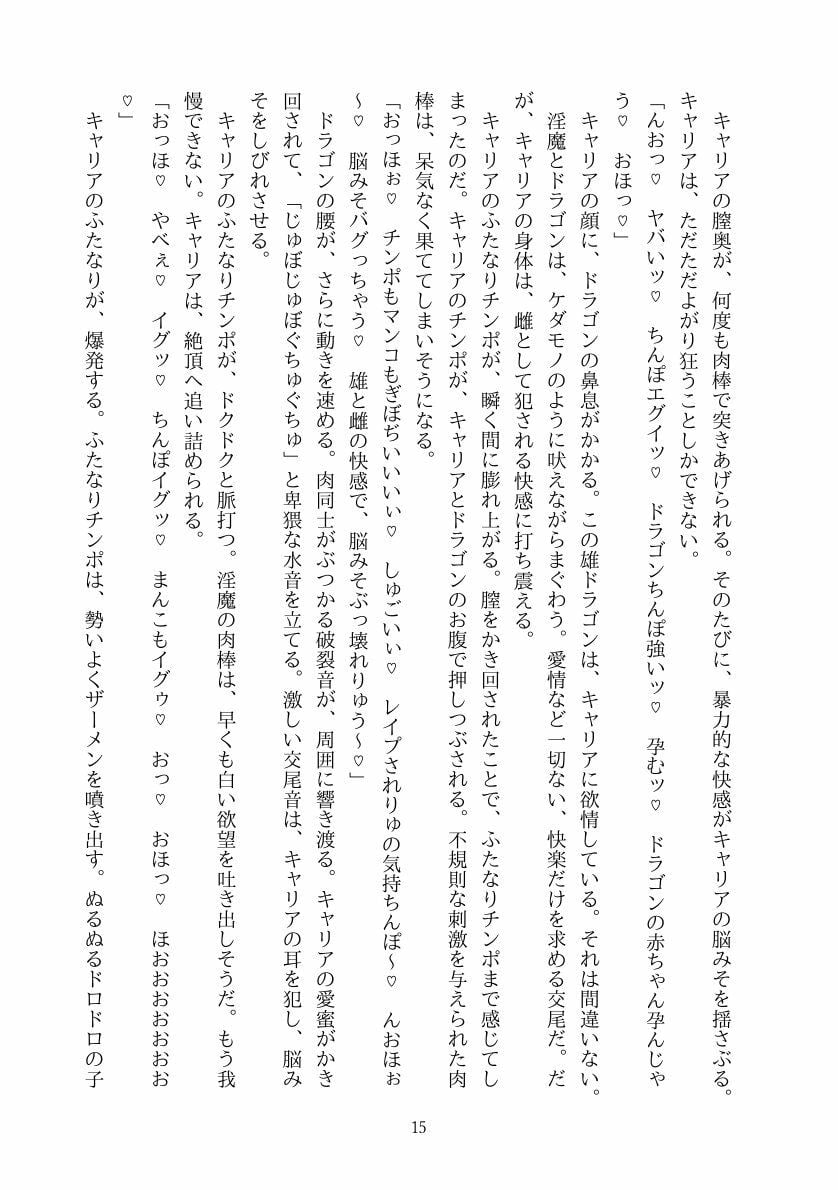 キャリアの膣奥が、何度も肉棒で突きあげられる。そのたびに、暴力的な快感がキャリアの脳みそを揺さぶる。
キャリアは、ただただよがり狂うことしかできない。
「んおっ♡　ヤバいッ♡　ちんぽエグイッ♡　ドラゴンちんぽ強いッ♡　孕むッ♡　ドラゴンの赤ちゃん孕んじゃ
う♡　おほっ♡」
キャリアの顔に、ドラゴンの鼻息がかかる。この雄ドラゴンは、キャリアに欲情している。それは間違いない。
淫魔とドラゴンは、ケダモノのように吠えながらまぐわう。愛情など一切ない、快楽だけを求める交尾だ。だ
が、キャリアの身体は、雌として犯される快感に打ち震える。
キャリアのふたなりチンポが、瞬く間に膨れ上がる。膣をかき回されたことで、ふたなりチンポまで感じてし
まったのだ。キャリアのチンポが、キャリアとドラゴンのお腹で押しつぶされる。不規則な刺激を与えられた肉
棒は、呆気なく果ててしまいそうになる。
「おっほぉ♡　チンポもマンコもぎぼぢいいいぃ♡　しゅごいぃ♡　レイプされりゅの気持ちんぽ～♡　んおほぉ
～♡　脳みそバグっちゃう♡　雄と雌の快感で、脳みそぶっ壊れりゅう～♡」
ドラゴンの腰が、さらに動きを速める。肉同士がぶつかる破裂音が、周囲に響き渡る。キャリアの愛蜜がかき
回されて、「じゅぼじゅぼぐちゅぐちゅ」と卑猥な水音を立てる。激しい交尾音は、キャリアの耳を犯し、脳み
そをしびれさせる。
キャリアのふたなりチンポが、ドクドクと脈打つ。淫魔の肉棒は、早くも白い欲望を吐き出しそうだ。もう我
慢できない。キャリアは、絶頂へ追い詰められる。
「おっほ♡　やべぇ♡　イグッ♡　ちんぽイグッ♡　まんこもイグゥ♡　おっ♡　おほっ♡　ほおおおおおおお
♡」
キャリアのふたなりが、爆発する。ふたなりチンポは、勢いよくザーメンを噴き出す。ぬるぬるドロドロの子
15